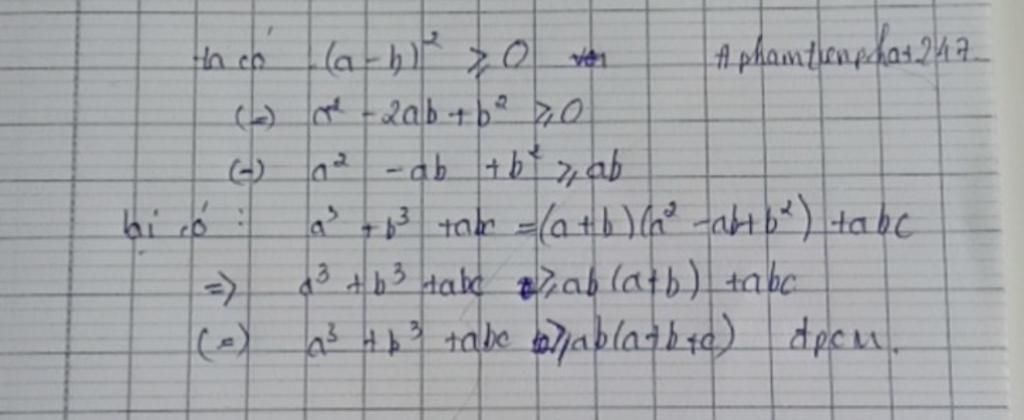 ta có (a-b)² ≥ 0 Aphamtienphat247
(=) a² - 2ab + b² ≥ 0
(=) a² - ab + b² ≥ ab
lại có : a³ + b³ + abc = (a+b)(a² - ab + b²) + abc
=> a³ + b³ + abc ≥ ab(a+b) + abc
(=) a³ + b³ + abc ≥ ab(a+b+c) đpcm.